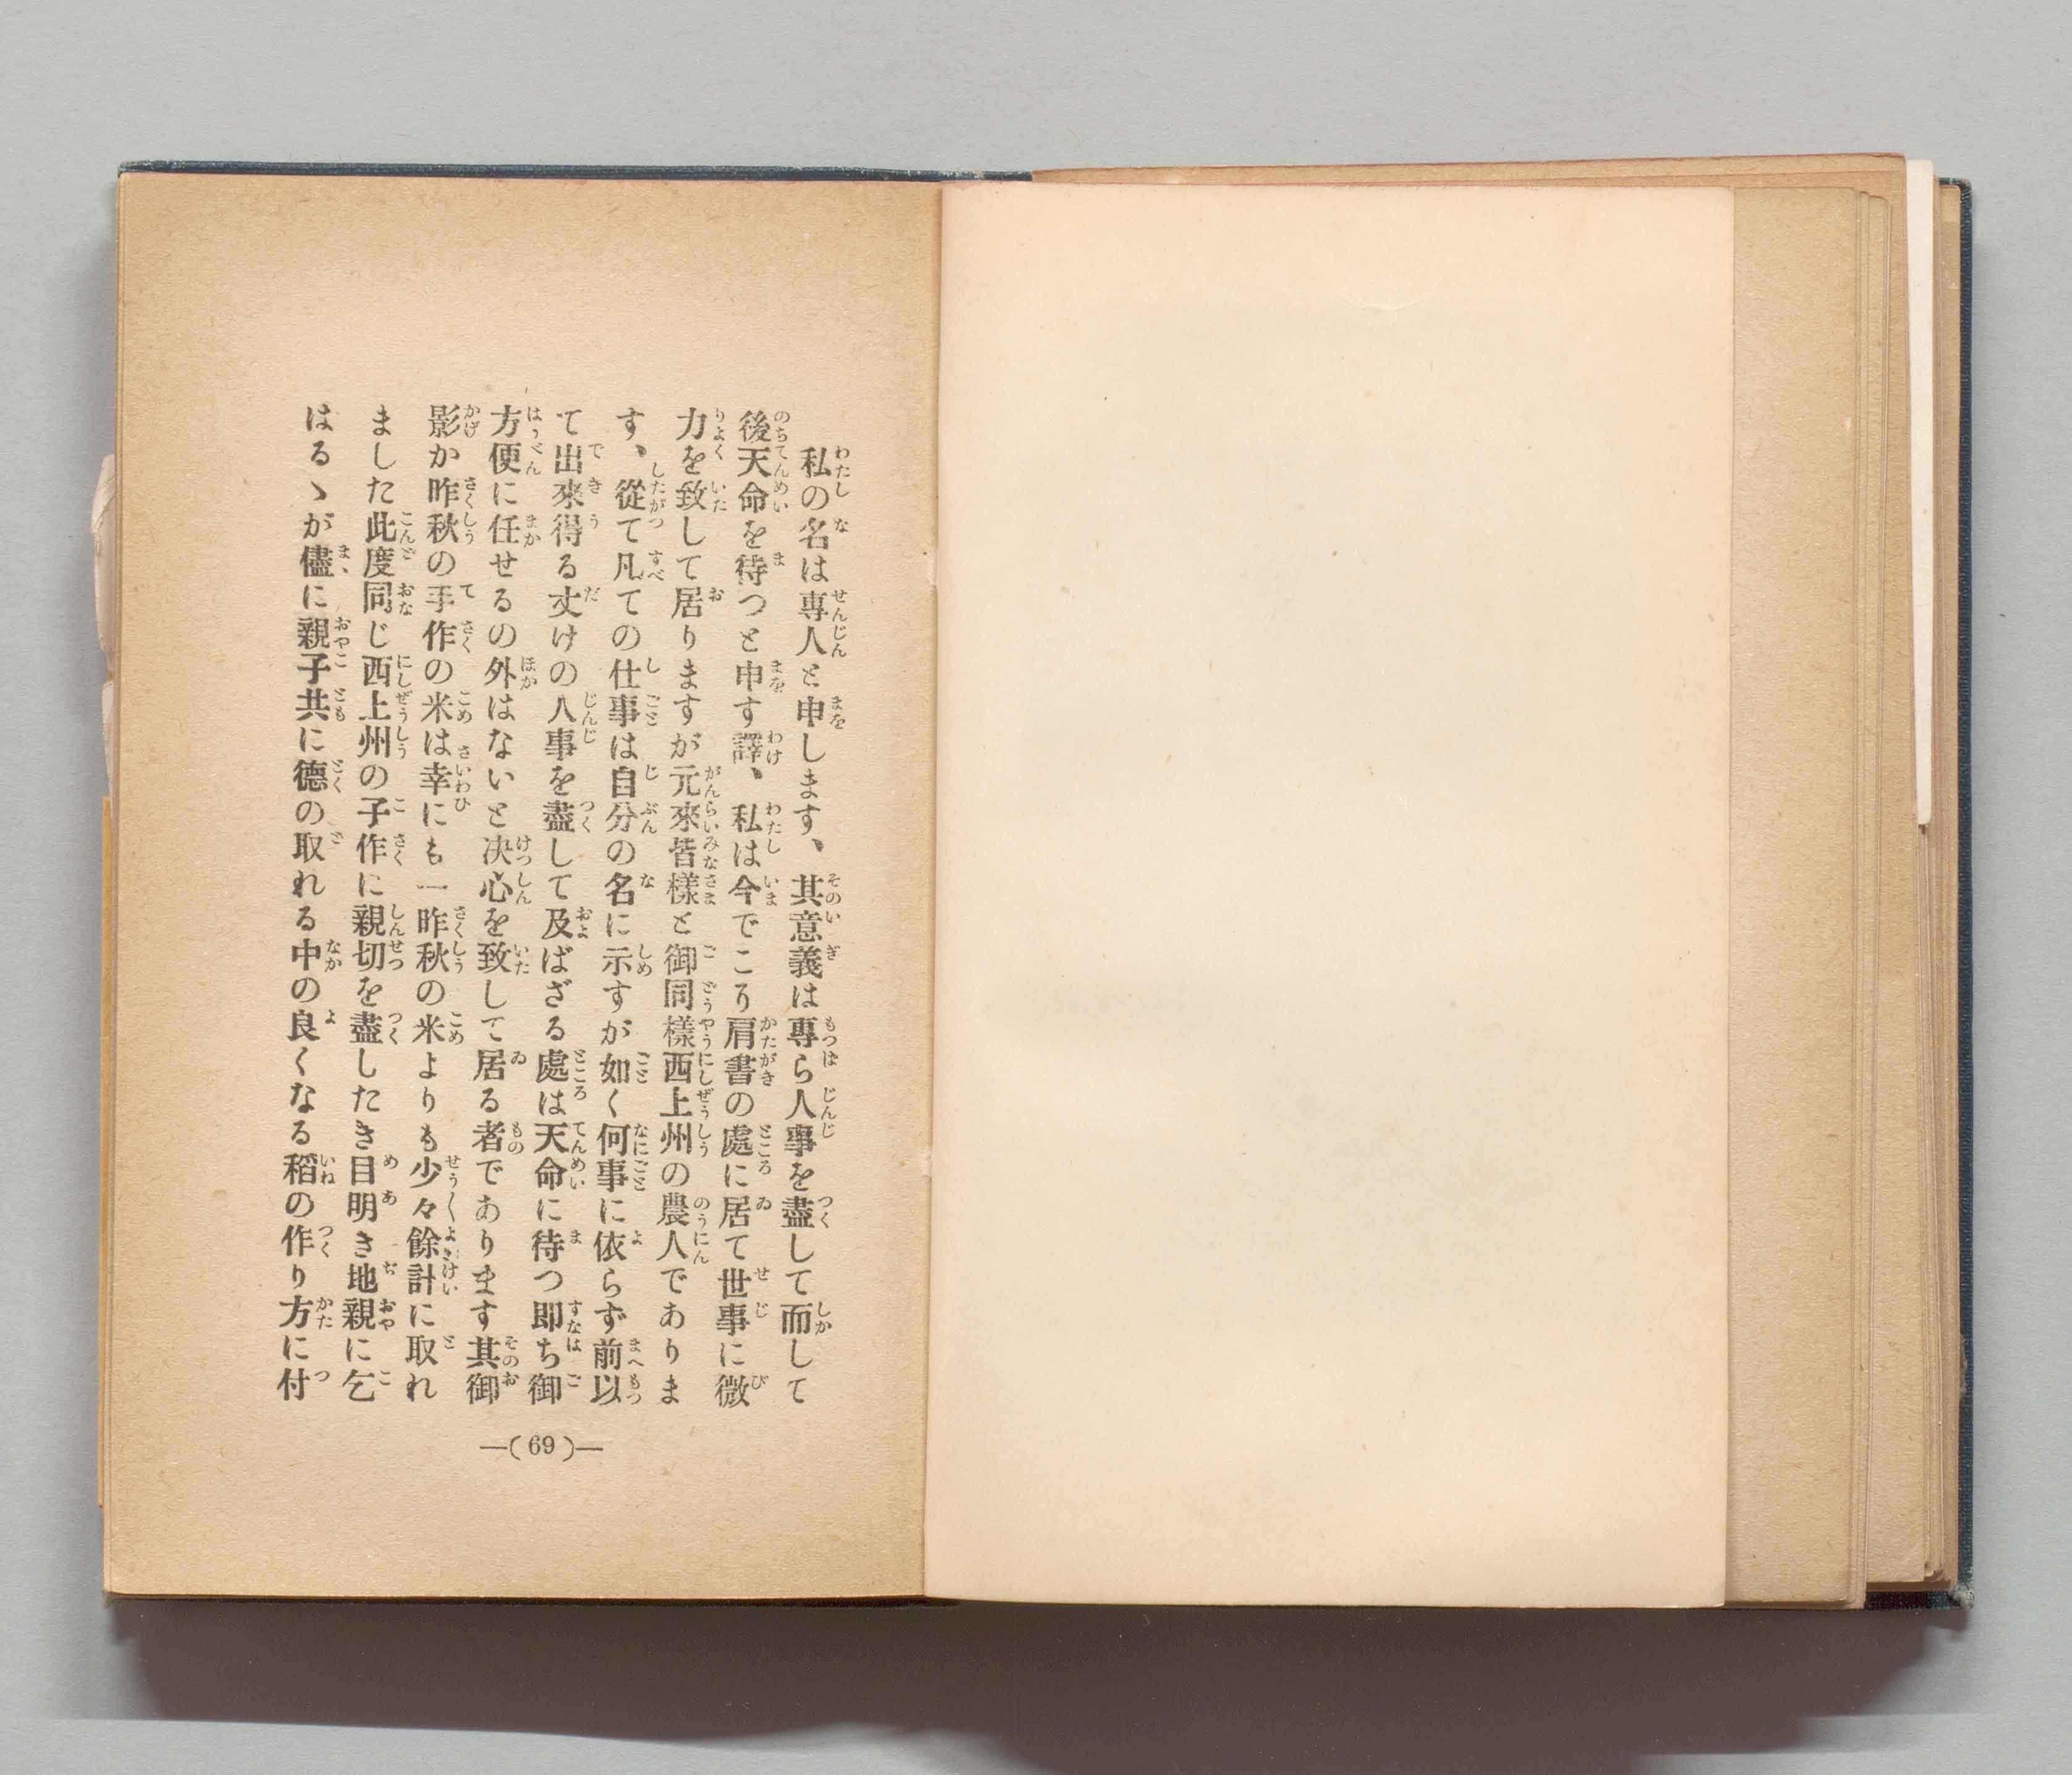 私の名は專人と申します、其意義は專ら人事を盡して而して
後天命を待つと申す譯、私は今でこり肩書の處に居て世事に微
力を致して居りますが元來皆樣と御同樣西上州の農人でありま
す、從て凡ての仕事は自分の名に示すが如く何事に依らず前以
て出來得る丈けの人事を盡して及ばざる處は天命に待つ即ち御
方便に任せるの外はないと决心を致して居る者であります其御
影か昨秋の手作の米は幸にも一昨秋の米よりも少々餘計に取れ
ました此度同じ西上州の子作に親切を盡したき目明き地親に乞
はるゝが儘に親子共に德の取れる中の良くなる稻の作り方に付
—(69)—